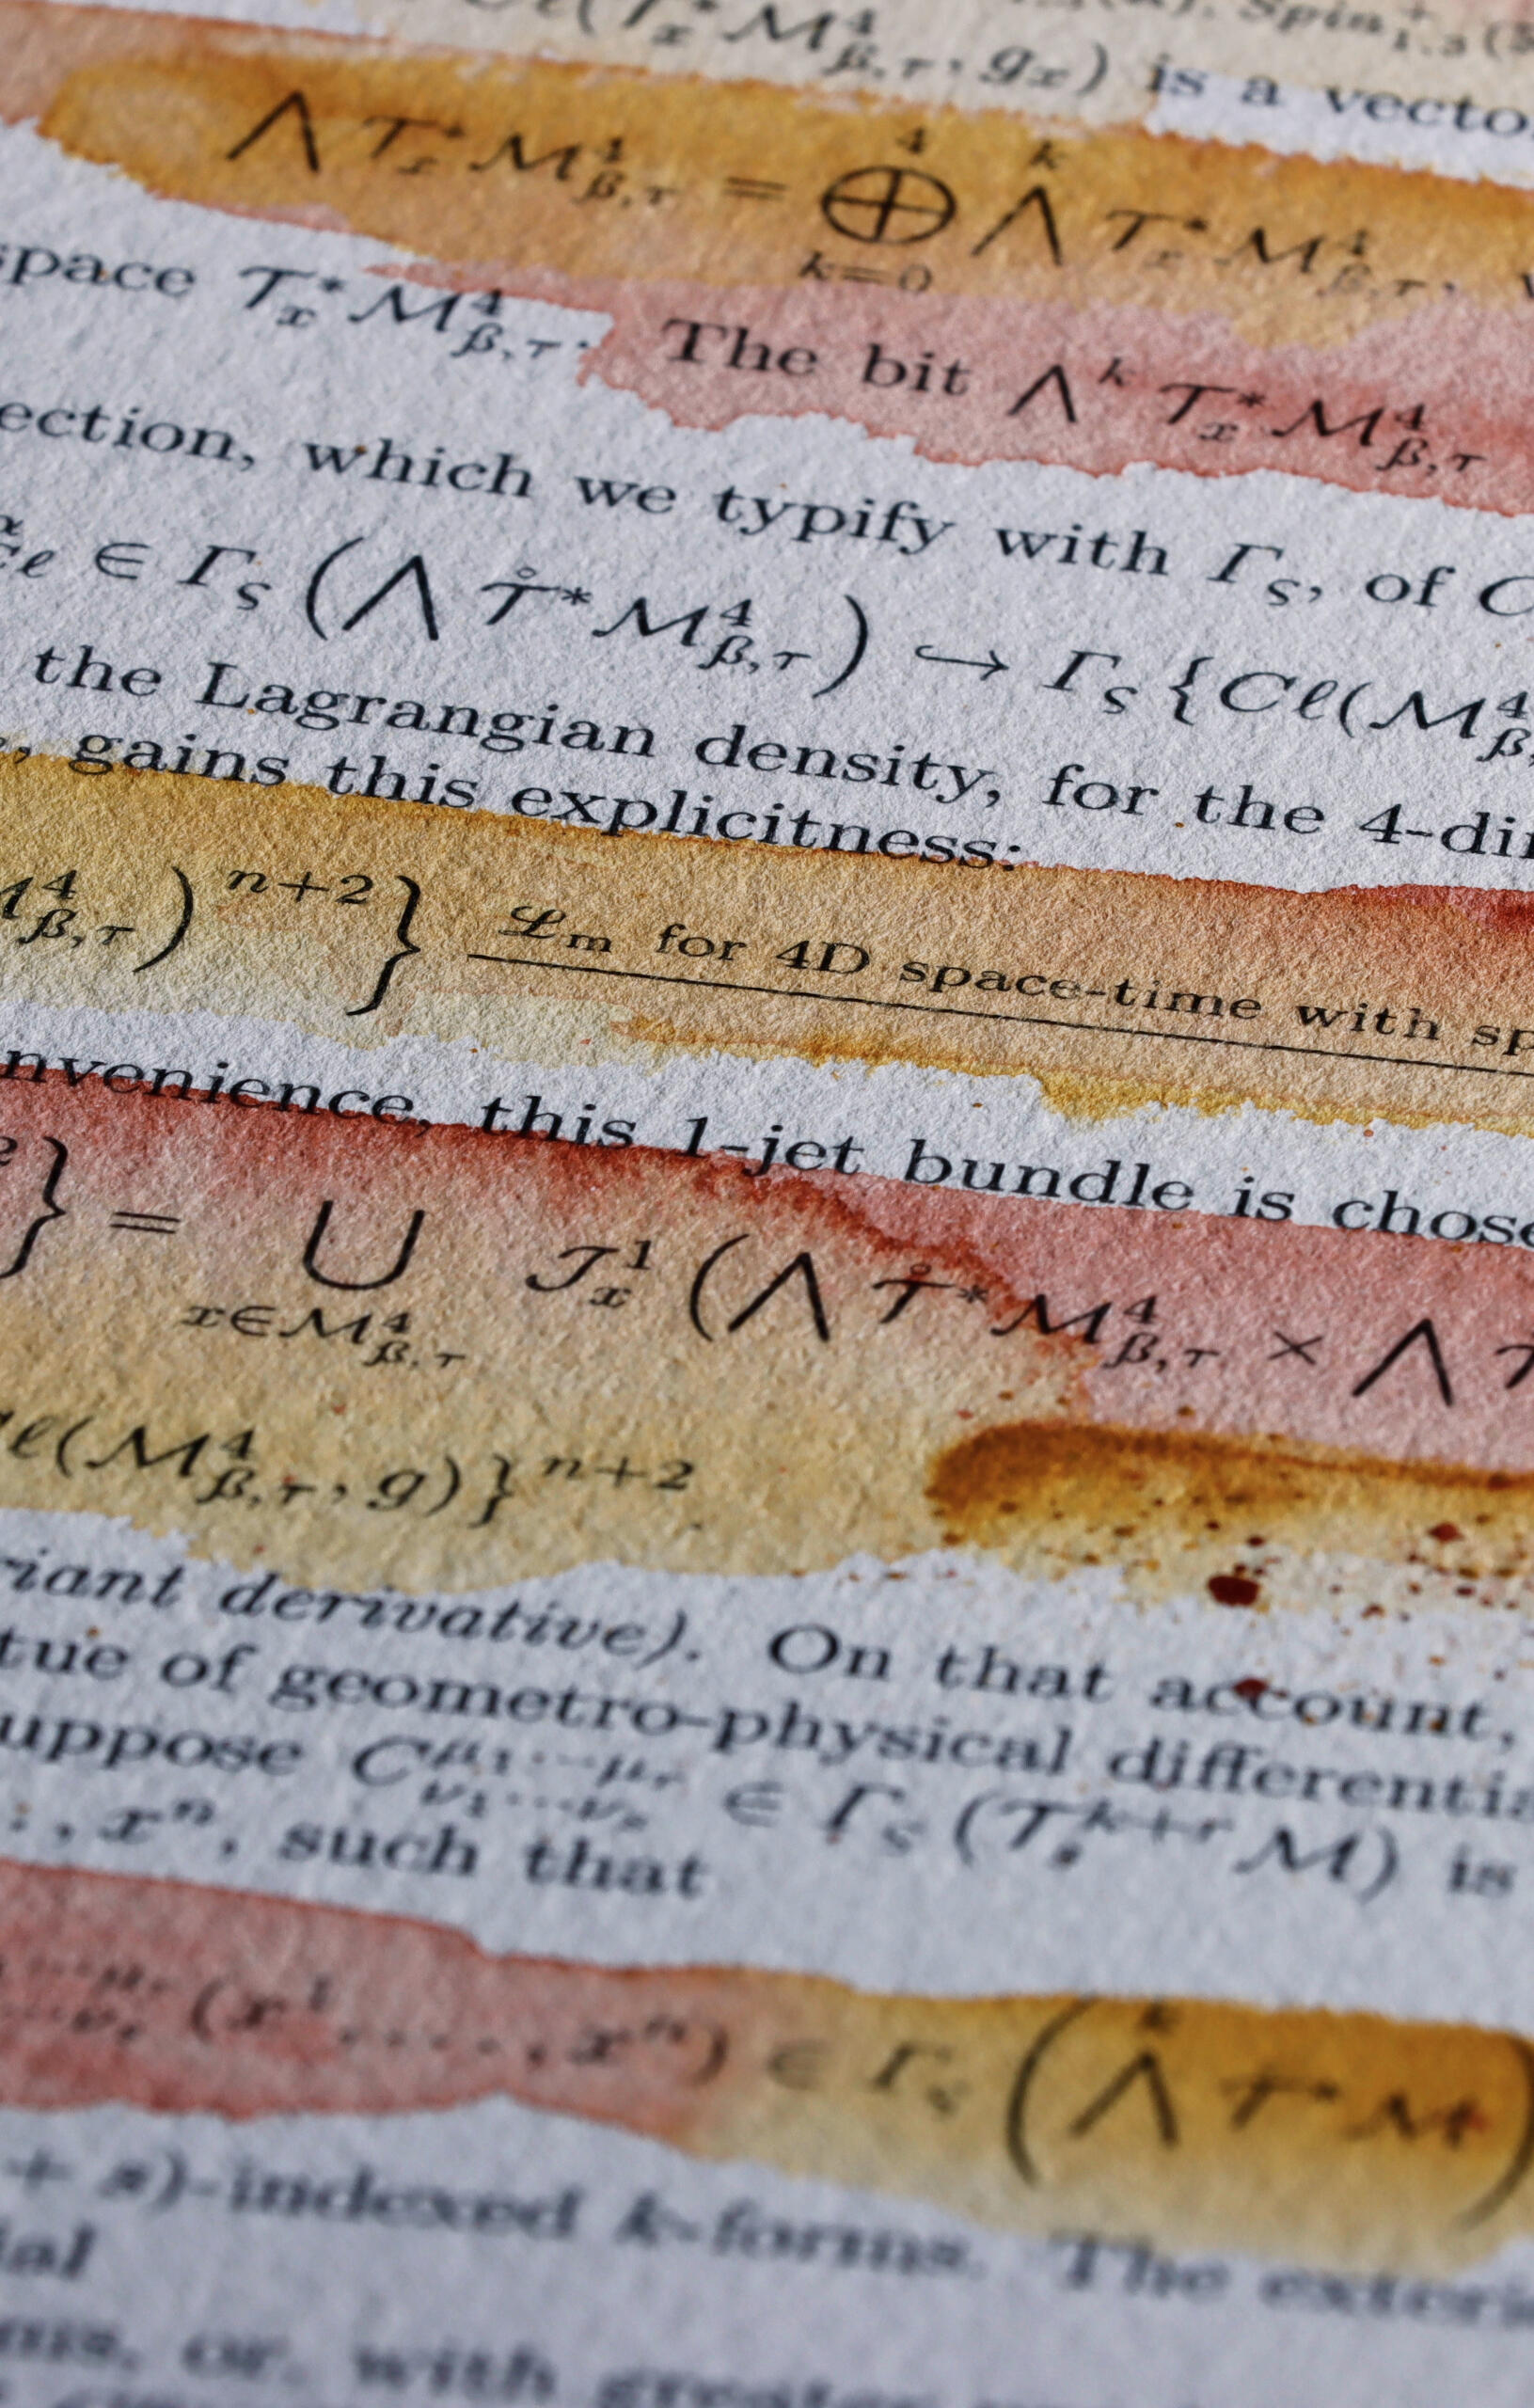 Cℓ(T*ₓM⁴_β,τ, gₓ) is a vecto
⋀ T*ₓM⁴_β,τ = ⨁⁴_k=0 ⋀ᵏ T*ₓM⁴_β,τ,
space T*ₓM⁴_β,τ. The bit ⋀ᵏ T*ₓM⁴_β,τ
ection, which we typify with Γ_ς, of C
ℓ ∈ Γ_ς (⋀ T̊*M⁴_β,τ) ↪ Γ_ς{Cℓ(M⁴_β,
the Lagrangian density, for the 4-di
, gains this explicitness:
M⁴_β,τ)ⁿ⁺²} ℒ_m for 4D space-time with sp
nvenience, this 1-jet bundle is chose
} = ⋃_x∈M⁴_β,τ J¹ₓ (⋀ T̊*M⁴_β,τ × ⋀ T
ℓ(M⁴_β,τ, g)}ⁿ⁺²
riant derivative). On that account,
tue of geometro-physical differentia
uppose C^μ₁…μᵣ_ν₁…νₛ ∈ Γ_ς (T^k+r_s M) is
, xⁿ, such that
(x¹, …, xⁿ) ∈ Γ_ς (⋀ᵏ T*M)
+ s)-indexed k-forms. The exteri
ial
ms, or, with greater